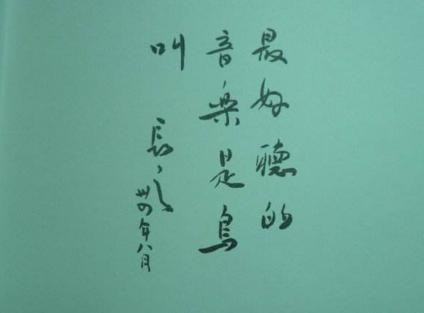 最好聽的
音樂是鳥
叫
長
卅四年八月